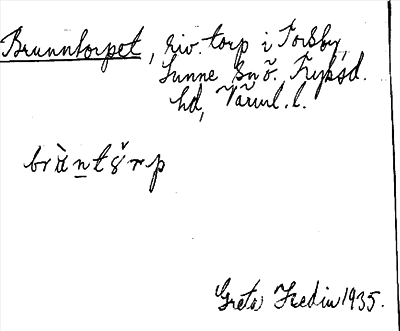 Brunntorpet, riv. torp i Torsby,
Sunne sn ö. Fryksd.
hd, Värml. l.
brànt ŏ r p
Greta Hedin 1935.